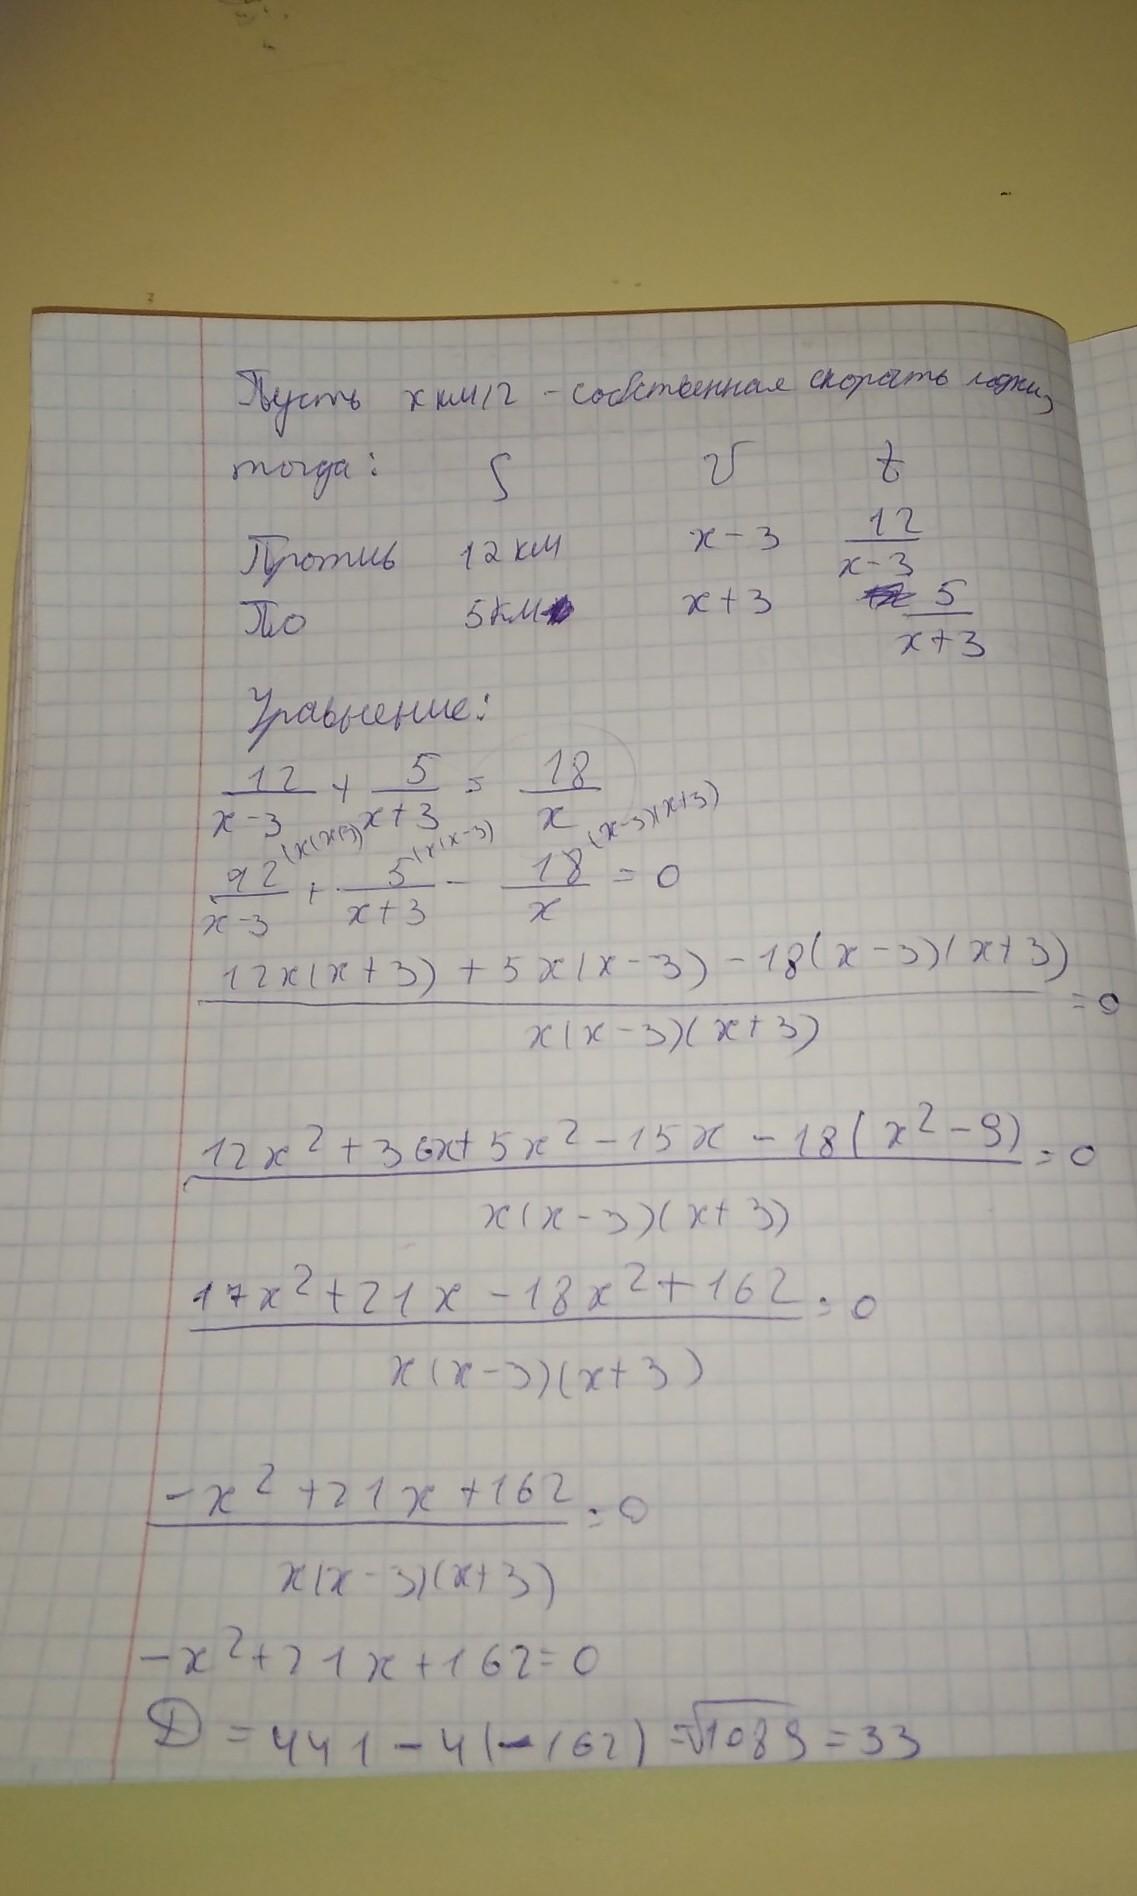 Пусть x км/г - собственная скорать лодки,
тогда: S v t
Против 12 км x-3 12/(x-3)
По 5 км x+3 5/(x+3)
Уравнение:
12/(x-3) + 5/(x+3) = 18/x
12/(x-3) (x(x+3) + 5/(x+3) (x(x-3) - 18/x (x-3)(x+3) = 0
(12x(x+3)+5x(x-3)-18(x-3)(x+3))/(x(x-3)(x+3)) = 0
(12x²+36x+5x²-15x-18(x²-9))/(x(x-3)(x+3)) = 0
(17x²+21x-18x²+162)/(x(x-3)(x+3)) = 0
(-x²+21x+162)/(x(x-3)(x+3)) = 0
-x²+21x+162=0
D = 441-4(-162) = √1089 = 33